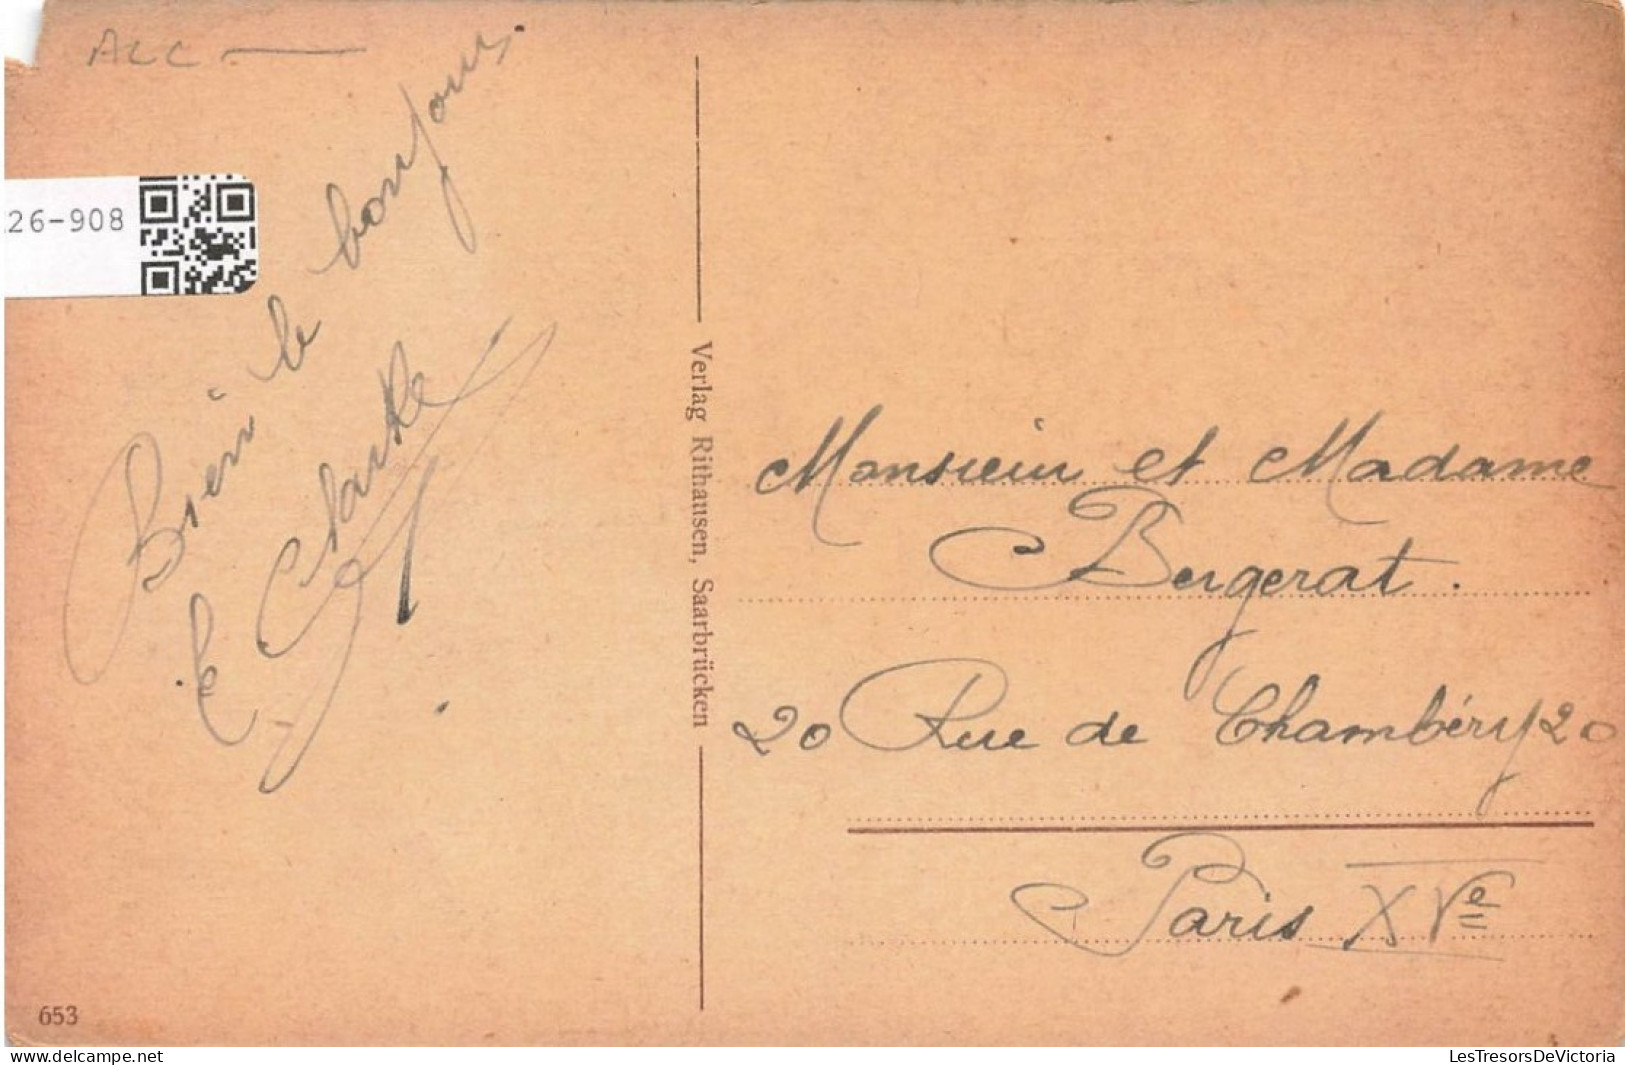 ALL
26-908
Bien le bonjour
Verlag Rithausen, Saarbrücken
Monsieur et Madame
Bergerat.
20 Rue de Chambéry 20
Paris XVe
653
delcampe.net
LesTresorsDeVictoria